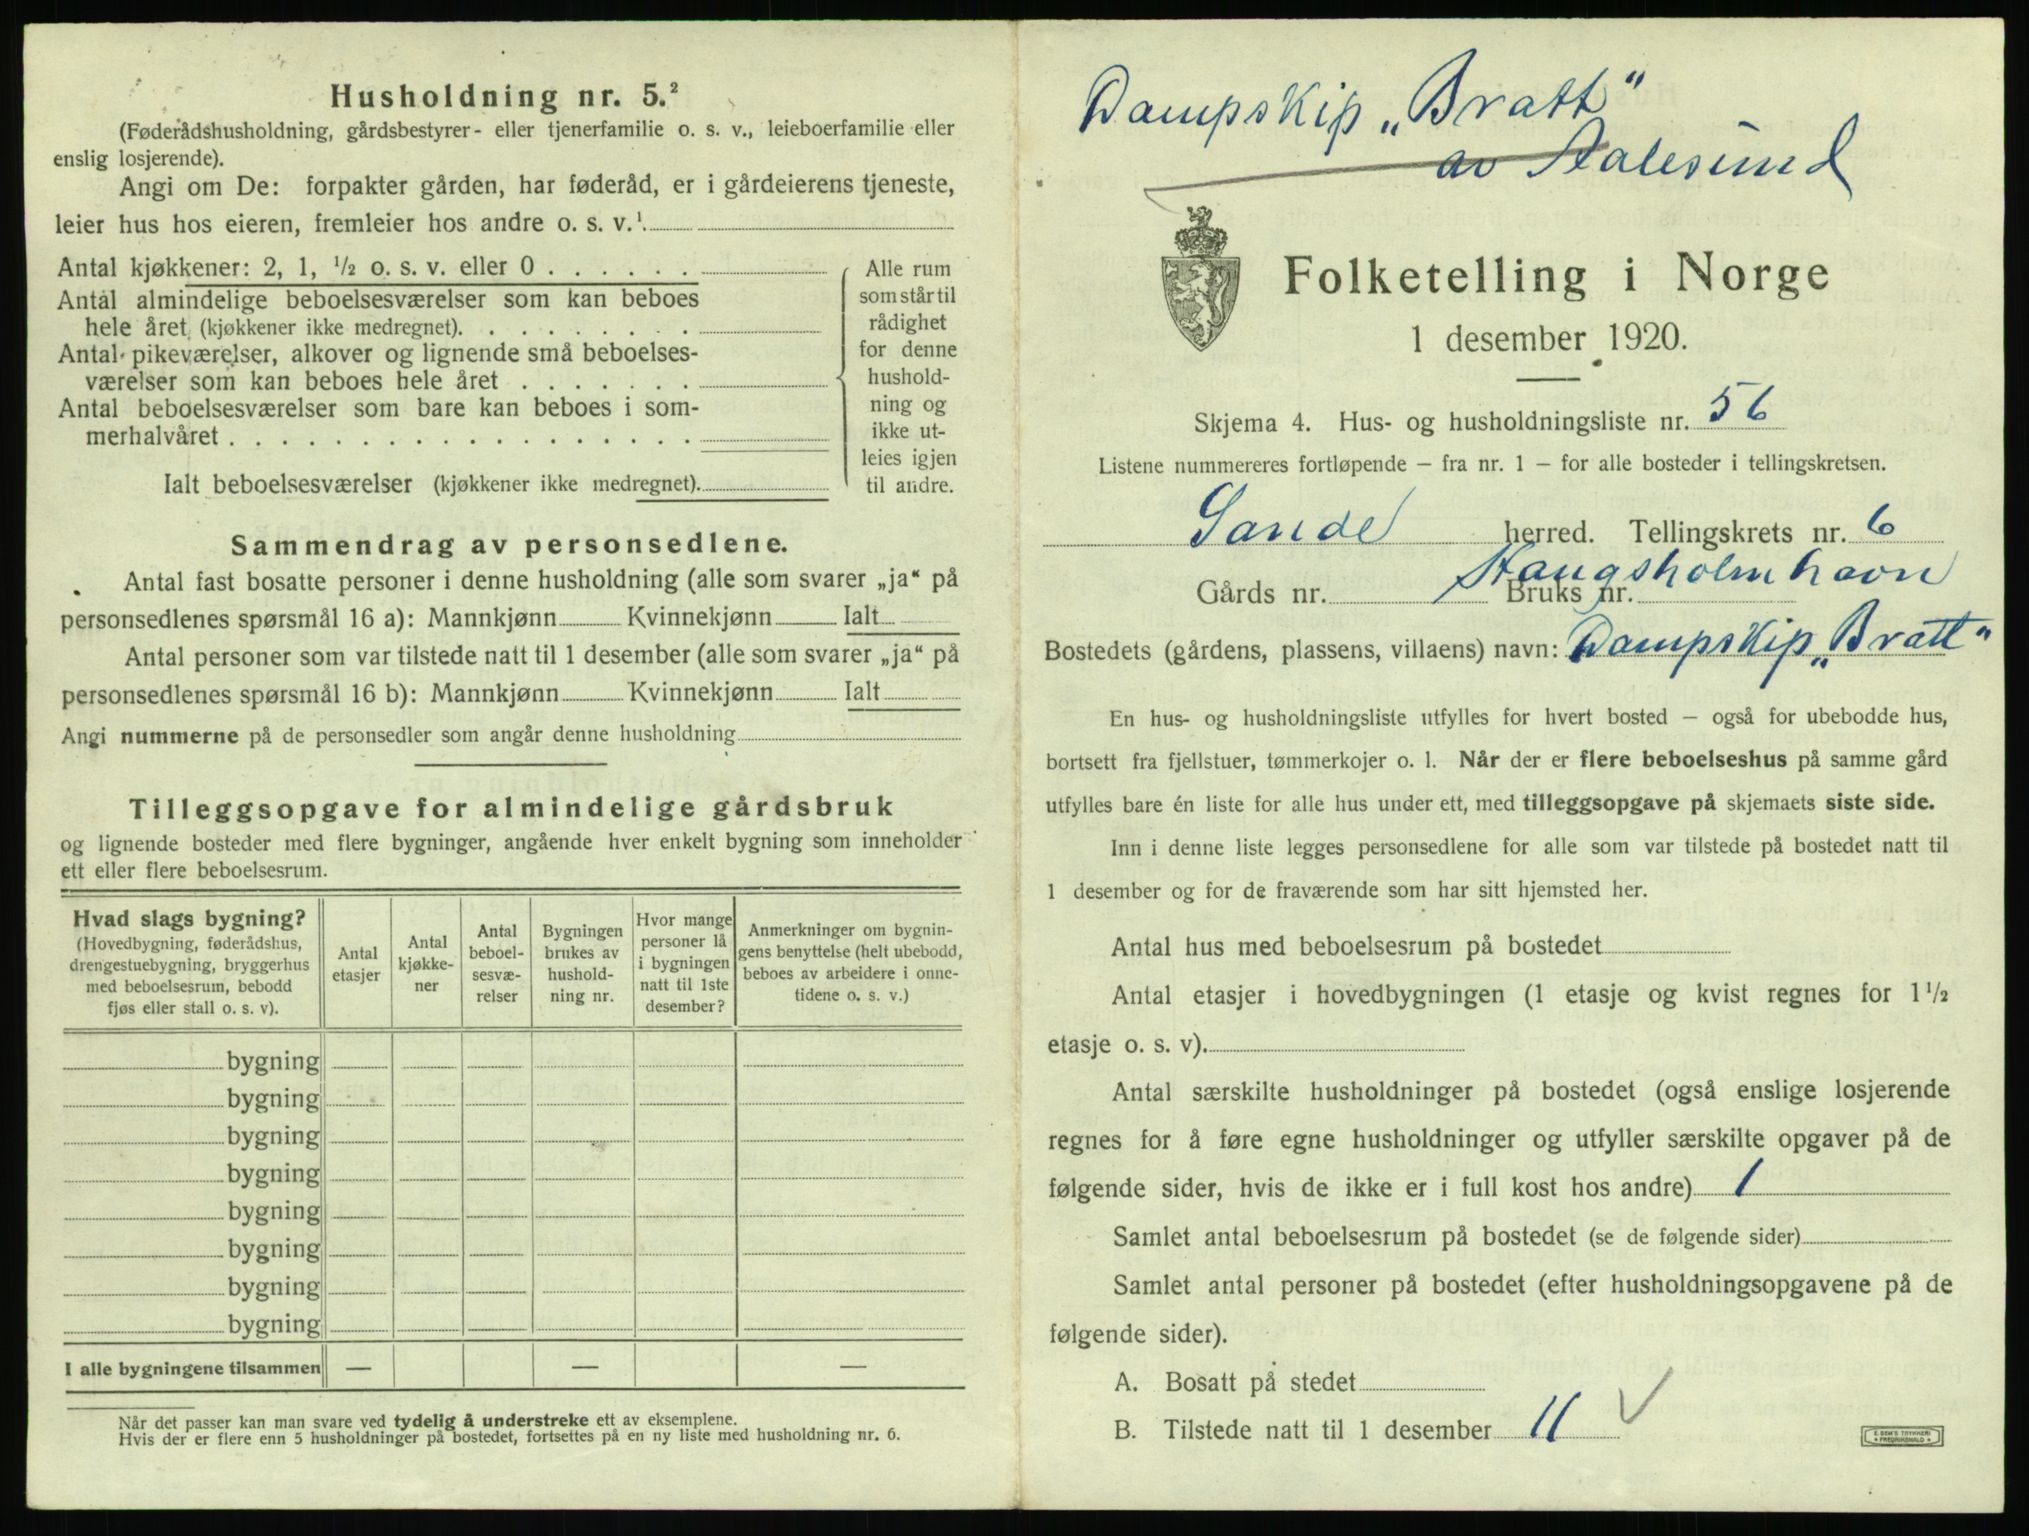 Husholdning nr. 5.²
(Føderådshusholdning, gårdsbestyrer- eller tjenerfamilie o. s. v., leieboerfamilie eller
enslig losjerende).
Angi om De: forpakter gården, har føderåd, er i gårdeierens tjeneste,
leier hus hos eieren, fremleier hos andre o. s. v.¹
Antal kjøkkener: 2, 1, ½ o. s. v. eller 0 . . . . . .
Antal almindelige beboelsesværelser som kan beboes
hele året (kjøkkener ikke medregnet). . . . . . . . .
Antal pikeværelser, alkover og lignende små beboelses-
værelser som kan beboes hele året . . . . . . .
Antal beboelsesværelser som bare kan beboes i som-
merhalvåret . . . . . . . . . . . . . . . . . .
Ialt beboelsesværelser (kjøkkener ikke medregnet).
Alle rum
som står til
rådighet
for denne
hushold-
ning og
ikke ut-
leies igjen
til andre.
Sammendrag av personsedlene.
Antal fast bosatte personer i denne husholdning (alle som svarer „ja“ på
personsedlenes spørsmål 16 a): Mannkjønn Kvinnekjønn Ialt
Antal personer som var tilstede natt til 1 desember (alle som svarer „ja“ på
personsedlenes spørsmål 16 b): Mannkjønn Kvinnekjønn Ialt
Angi nummerne på de personsedler som angår denne husholdning
Tilleggsopgave for almindelige gårdsbruk
og lignende bosteder med flere bygninger, angående hver enkelt bygning som inneholder
ett eller flere beboelsesrum.
Hvad slags bygning?
(Hovedbygning, føderådshus,
drengestuebygning, bryggerhus
med beboelsesrum, bebodd
fjøs eller stall o. s. v).
Antal
etasjer
Antal
kjøkke-
ner
Antal
beboel-
sesvæ-
relser
Bygningen
brukes av
hushold-
ning nr.
Hvor mange
personer lå
i bygningen
natt til 1ste
desember?
Anmerkninger om bygnin-
gens benyttelse (helt ubebodd,
beboes av arbeidere i onne-
tidene o. s. v.)
bygning
bygning
bygning
bygning
bygning
bygning
bygning
bygning
I alle bygningene tilsammen — — —
Når det passer kan man svare ved tydelig å understreke ett av eksemplene.
Hvis der er flere enn 5 husholdninger på bostedet, fortsettes på en ny liste med husholdning nr. 6.
Dampskip „Bratt“
av Aalesund
Folketelling i Norge
1 desember 1920.
Skjema 4. Hus- og husholdningsliste nr. 56
Listene nummereres fortløpende – fra nr. 1 – for alle bosteder i tellingskretsen.
Sande herred. Tellingskrets nr. 6
Haugsholmhavn
Gårds nr. Bruks nr.
Bostedets (gårdens, plassens, villaens) navn: Dampskip „Bratt“
En hus- og husholdningsliste utfylles for hvert bosted – også for ubebodde hus,
bortsett fra fjellstuer, tømmerkojer o. l. Når der er flere beboelseshus på samme gård
utfylles bare én liste for alle hus under ett, med tilleggsopgave på skjemaets siste side.
Inn i denne liste legges personsedlene for alle som var tilstede på bostedet natt til
1 desember og for de fraværende som har sitt hjemsted her.
Antal hus med beboelsesrum på bostedet
Antal etasjer i hovedbygningen (1 etasje og kvist regnes for 1½
etasje o. s. v).
Antal særskilte husholdninger på bostedet (også enslige losjerende
regnes for å føre egne husholdninger og utfyller særskilte opgaver på de
følgende sider, hvis de ikke er i full kost hos andre) 1
Samlet antal beboelsesrum på bostedet (se de følgende sider)
Samlet antal personer på bostedet (efter husholdningsopgavene på de
følgende sider).
A. Bosatt på stedet
B. Tilstede natt til 1 desember 11 ✓
E. SEM'S TRYKKERI
FREDRIKSHALD